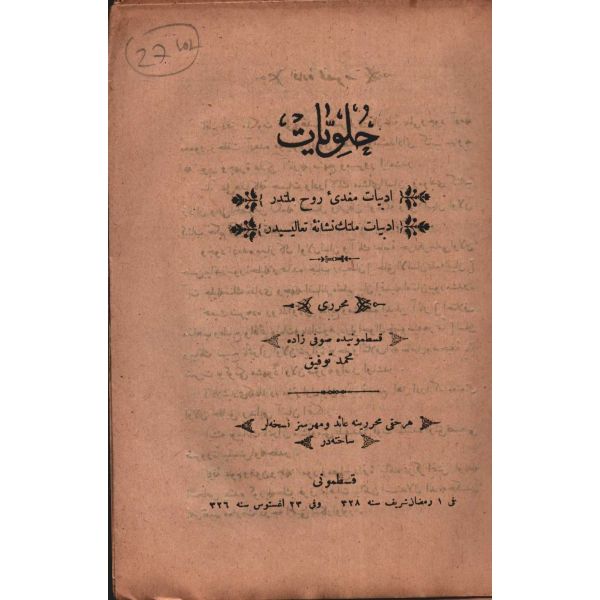 27
حُلوِيَّات
ادبيات مغدیٔ روح ملتدر
ادبيات ملتك نشانهٔ تعاليسيدر
محرری
قسطمونيده صوفی زاده
محمد توفيق
هر حقی محررينه عائد و مهرسز نسخه‌لر
ساخته‌در
قسطمونی
فی ١ رمضان شريف سنه ٣٢٨ وفی ٢٣ اغستوس سنه ٣٢٦